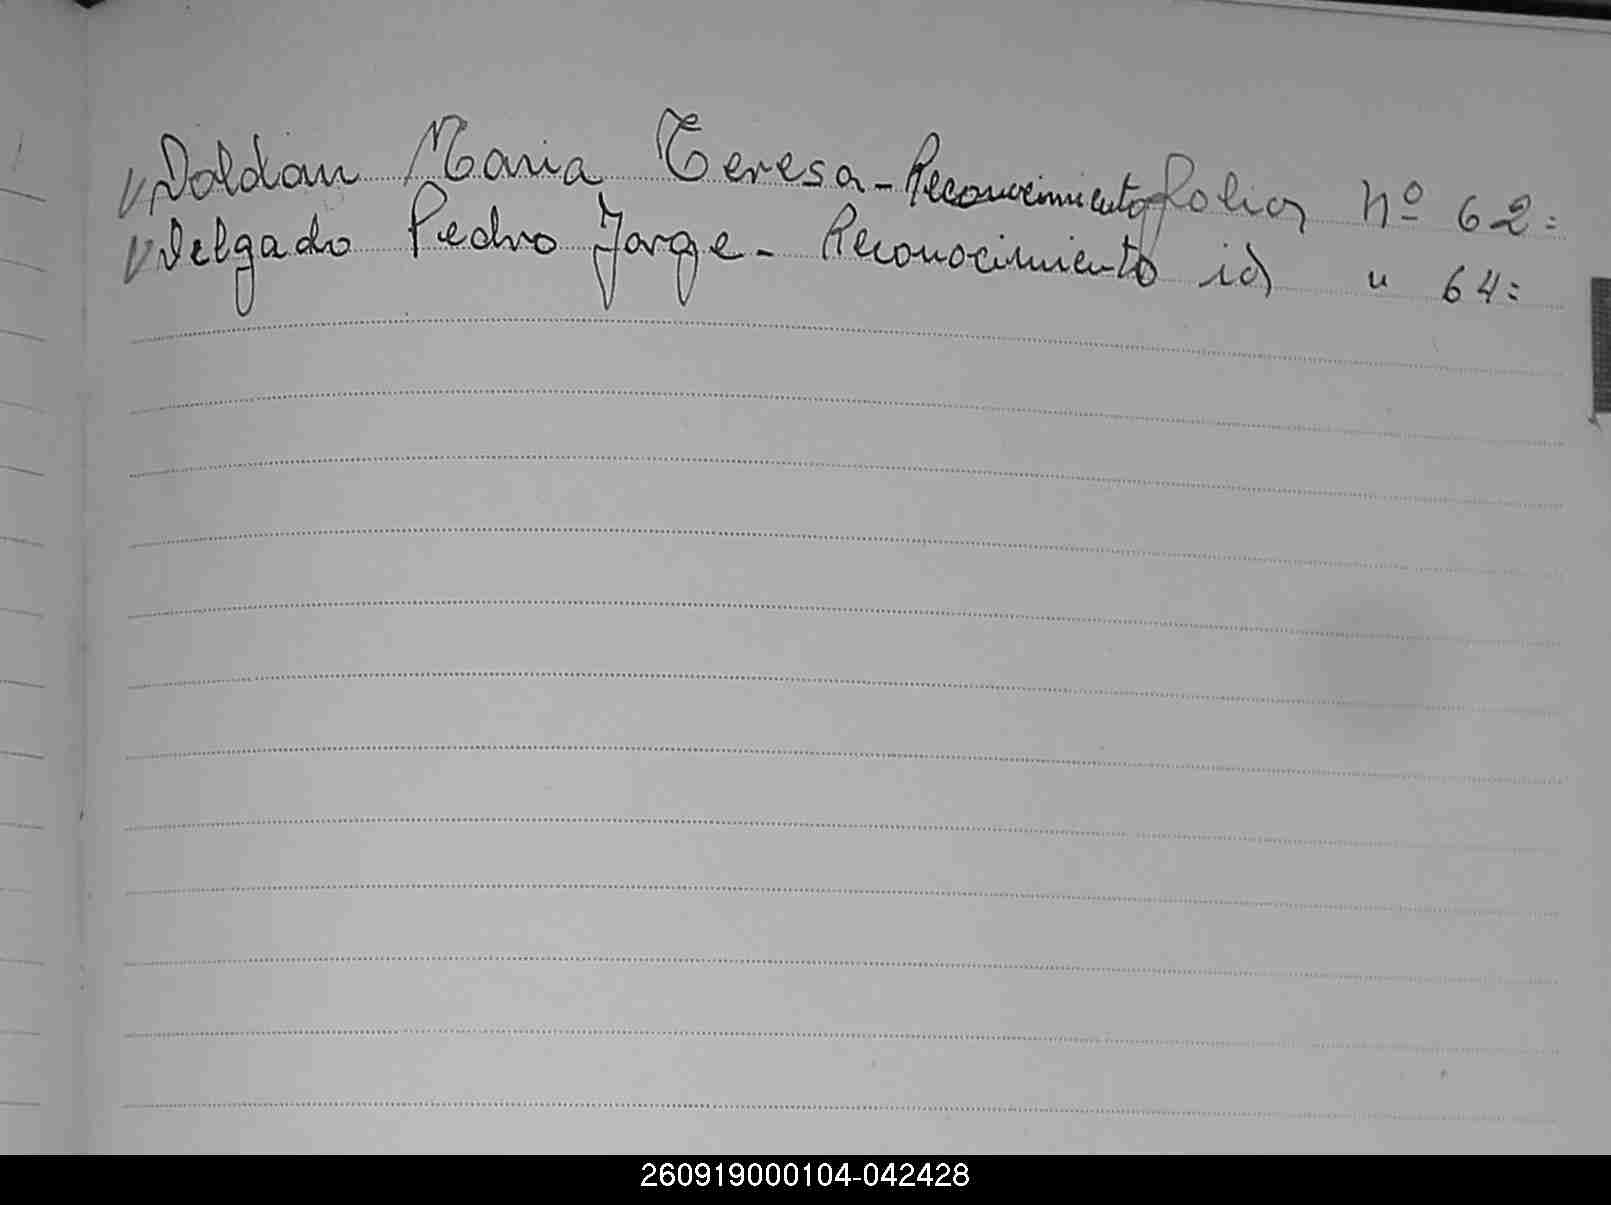 Doldan Maria Teresa - Reconocimiento folio nº 62=
Delgado Pedro Jorge - Reconocimiento id " 64=
260919000104-042428